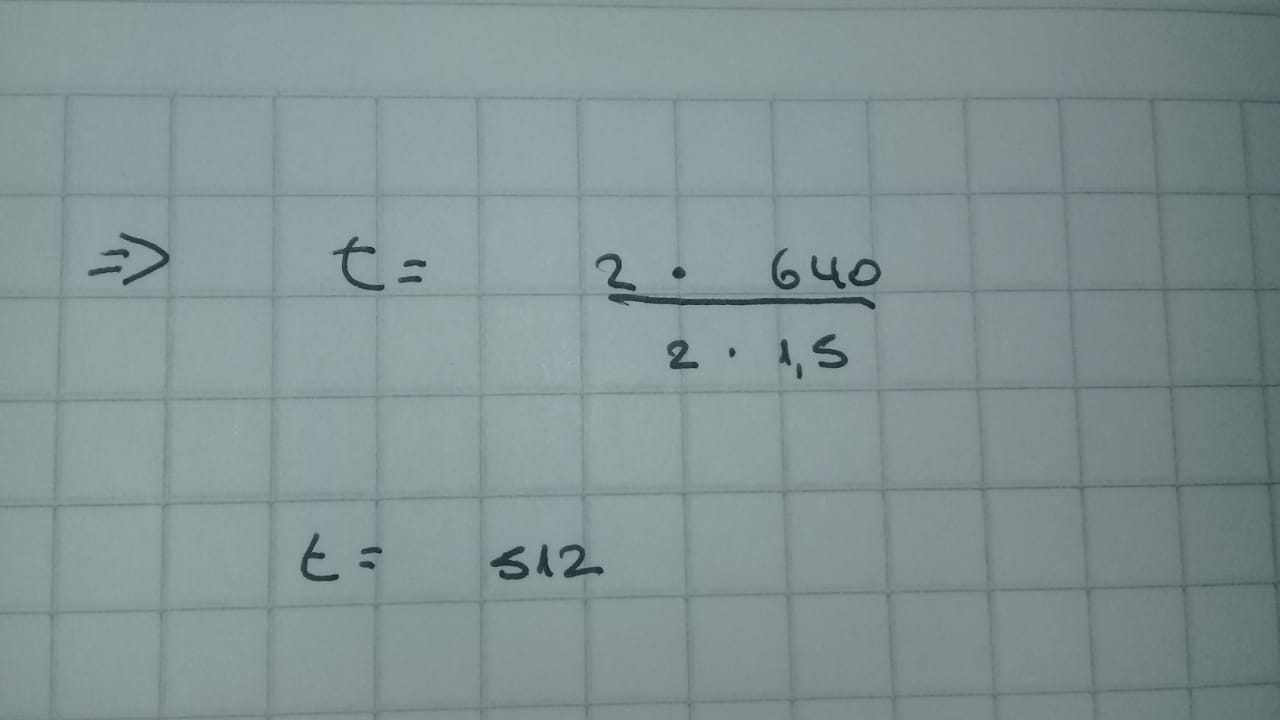 ⇒ t = 2 · 640
2 · 1,5
t = 512